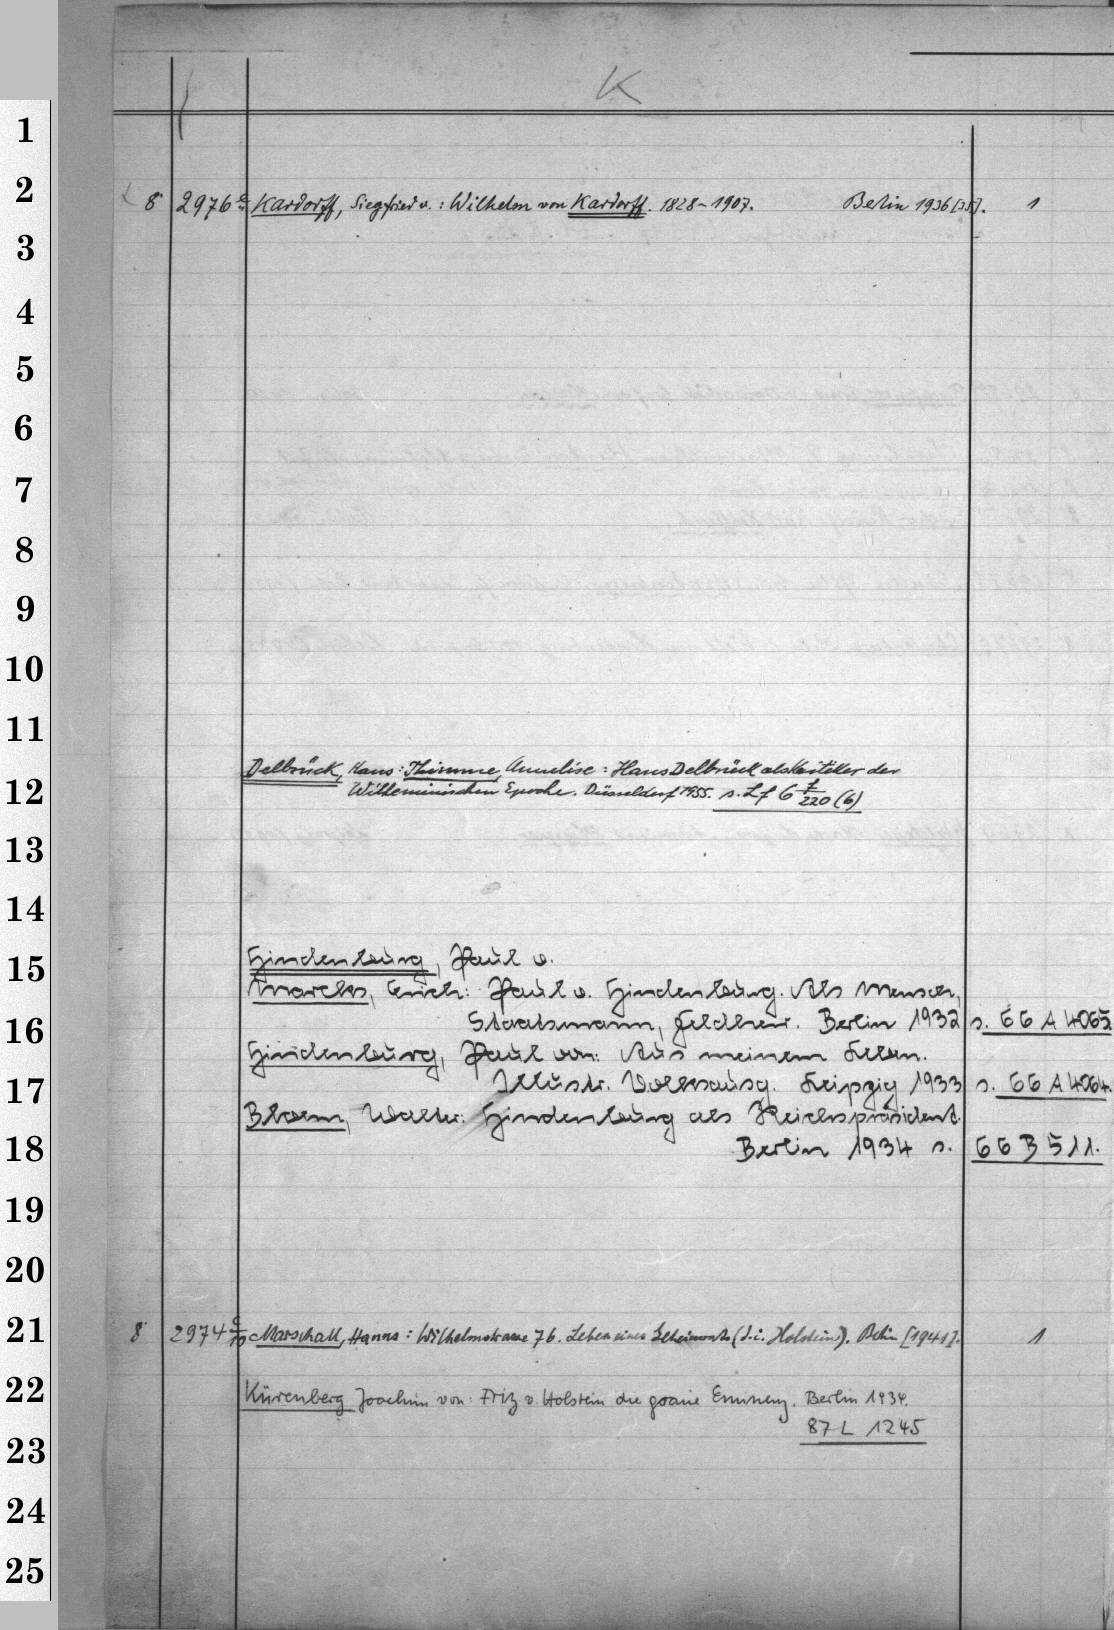 K
1
2
8° 2976 c Kardorff, Siegfried v.: Wilhelm von Kardorff. 1828-1907. Berlin 1936[35]. 1
3
4
5
6
7
8
9
10
11
Delbrück, Hans: Thimme, Annelise: Hans Delbrück als Kritiker der
12
Wilheminischen Epoche. Düsseldorf 1955. s. Lf 6 f/220 (6)
13
14
Hindenburg, Paul v.
15
Marcks, Erich: Paul v. Hindenburg. Als Mensch,
16
Staatsmann, Feldherr. Berlin 1932 s. 66 A 4065
Hindenburg, Paul von: Aus meinem Leben.
17
Illustr. Volksausg. Leipzig 1933 s. 66 A 4064.
Bloem, Walter: Hindenburg als Reichspräsident.
18
Berlin 1934 s. 66 B 511.
19
20
21
8° 2974 c/10 Marschall, Hanns: Wilhelmstrasse 76. Leben eines Geheimrats (d.i. Holstein). Berlin [1941]. 1
22
Kürenberg Joachim von: Fritz v. Holstein die graue Eminenz. Berlin 1934.
23
87 L 1245
24
25